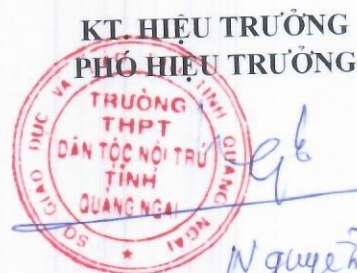 KT. HIỆU TRƯỞNG
PHÓ HIỆU TRƯỞNG
SỞ GIÁO DỤC VÀ TỈNH QUẢNG NGÃI
TRƯỜNG
THPT
DÂN TỘC NỘI TRÚ
TỈNH
QUẢNG NGÃI
Nguyễn